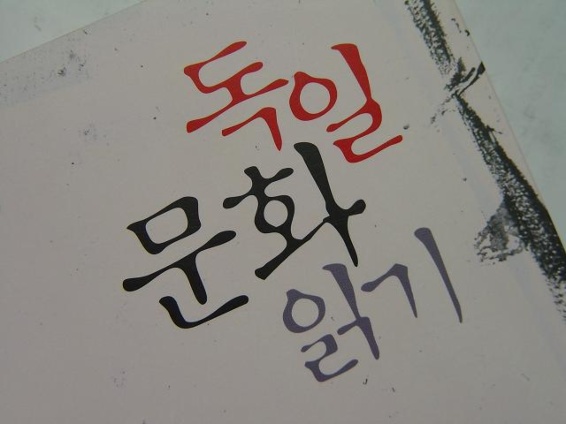 독일
문화
읽기